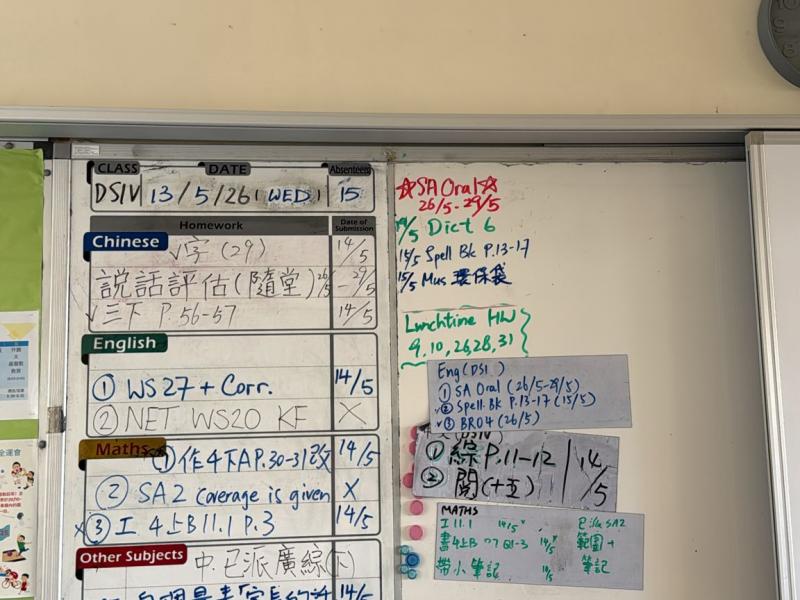 CLASS DATE Absentees
DSIV 13/5/26 (WED) 15
Homework Date of Submission
Chinese
√字(29) 14/5
説話評估(隨堂) 26/5-29/5
√三下 P.56-57 14/5
English
① WS27 + Corr. 14/5
② NET WS20 KF X
Maths
①作4下AP.30-31改 14/5
② SA2 coverage is given X
③ 工 4上B11.1 P.3 14/5
Other Subjects
中.已派廣綜(下)
14/5
☆SA Oral☆
26/5-29/5
14/5 Dict 6
15/5 Spell Bk P.13-17
15/5 Mus 環保袋
Lunchtime HW
9, 10, 26, 28, 31
Eng (DSI)
① SA Oral (26/5-29/5)
② Spell. Bk P.13-17 (15/5)
③ BR04 (26/5)
(DSIV)
① 綜 P.11-12 14/5
② 閱(十五)
MATHS
工11.1 14/5 已派 SA2
書4上B 14/5 範圍+
帶小筆記 筆記